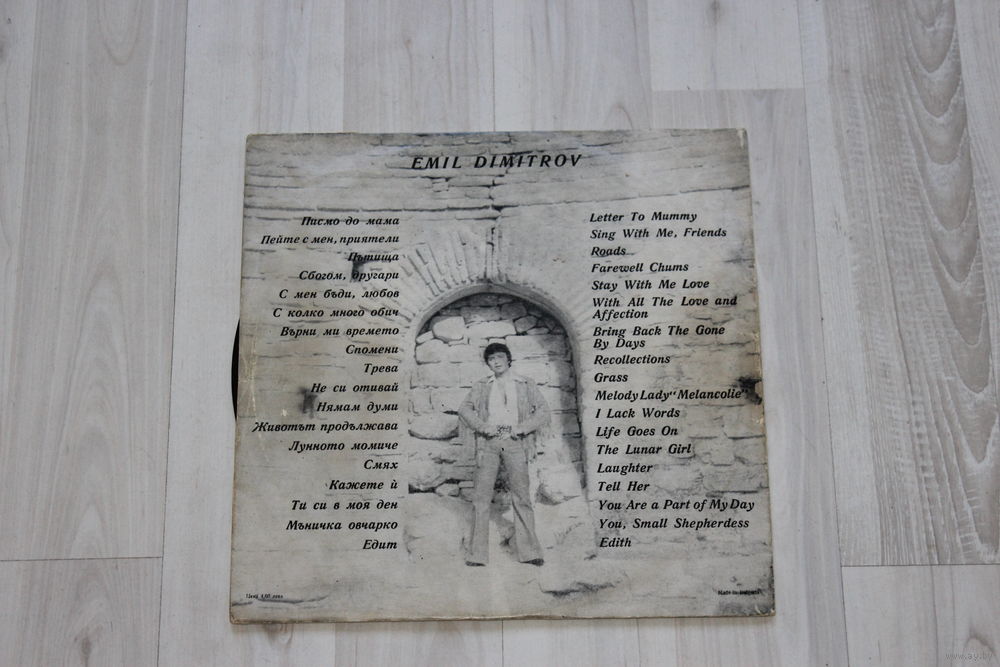 EMIL DIMITROV
Писмо до мама
Пейте с мен, приятели
Пътища
Сбогом, другари
С мен бъди, любов
С колко много обич
Върни ми времето
Спомени
Трева
Не си отивай
Нямам думи
Животът продължава
Лунното момиче
Смях
Кажете ѝ
Ти си в моя ден
Мъничка овчарко
Едит
Letter To Mummy
Sing With Me, Friends
Roads
Farewell Chums
Stay With Me Love
With All The Love and
Affection
Bring Back The Gone
By Days
Recollections
Grass
Melody Lady “Melancolie”
I Lack Words
Life Goes On
The Lunar Girl
Laughter
Tell Her
You Are a Part of My Day
You, Small Shepherdess
Edith
Made in Bulgaria
www.ay.by